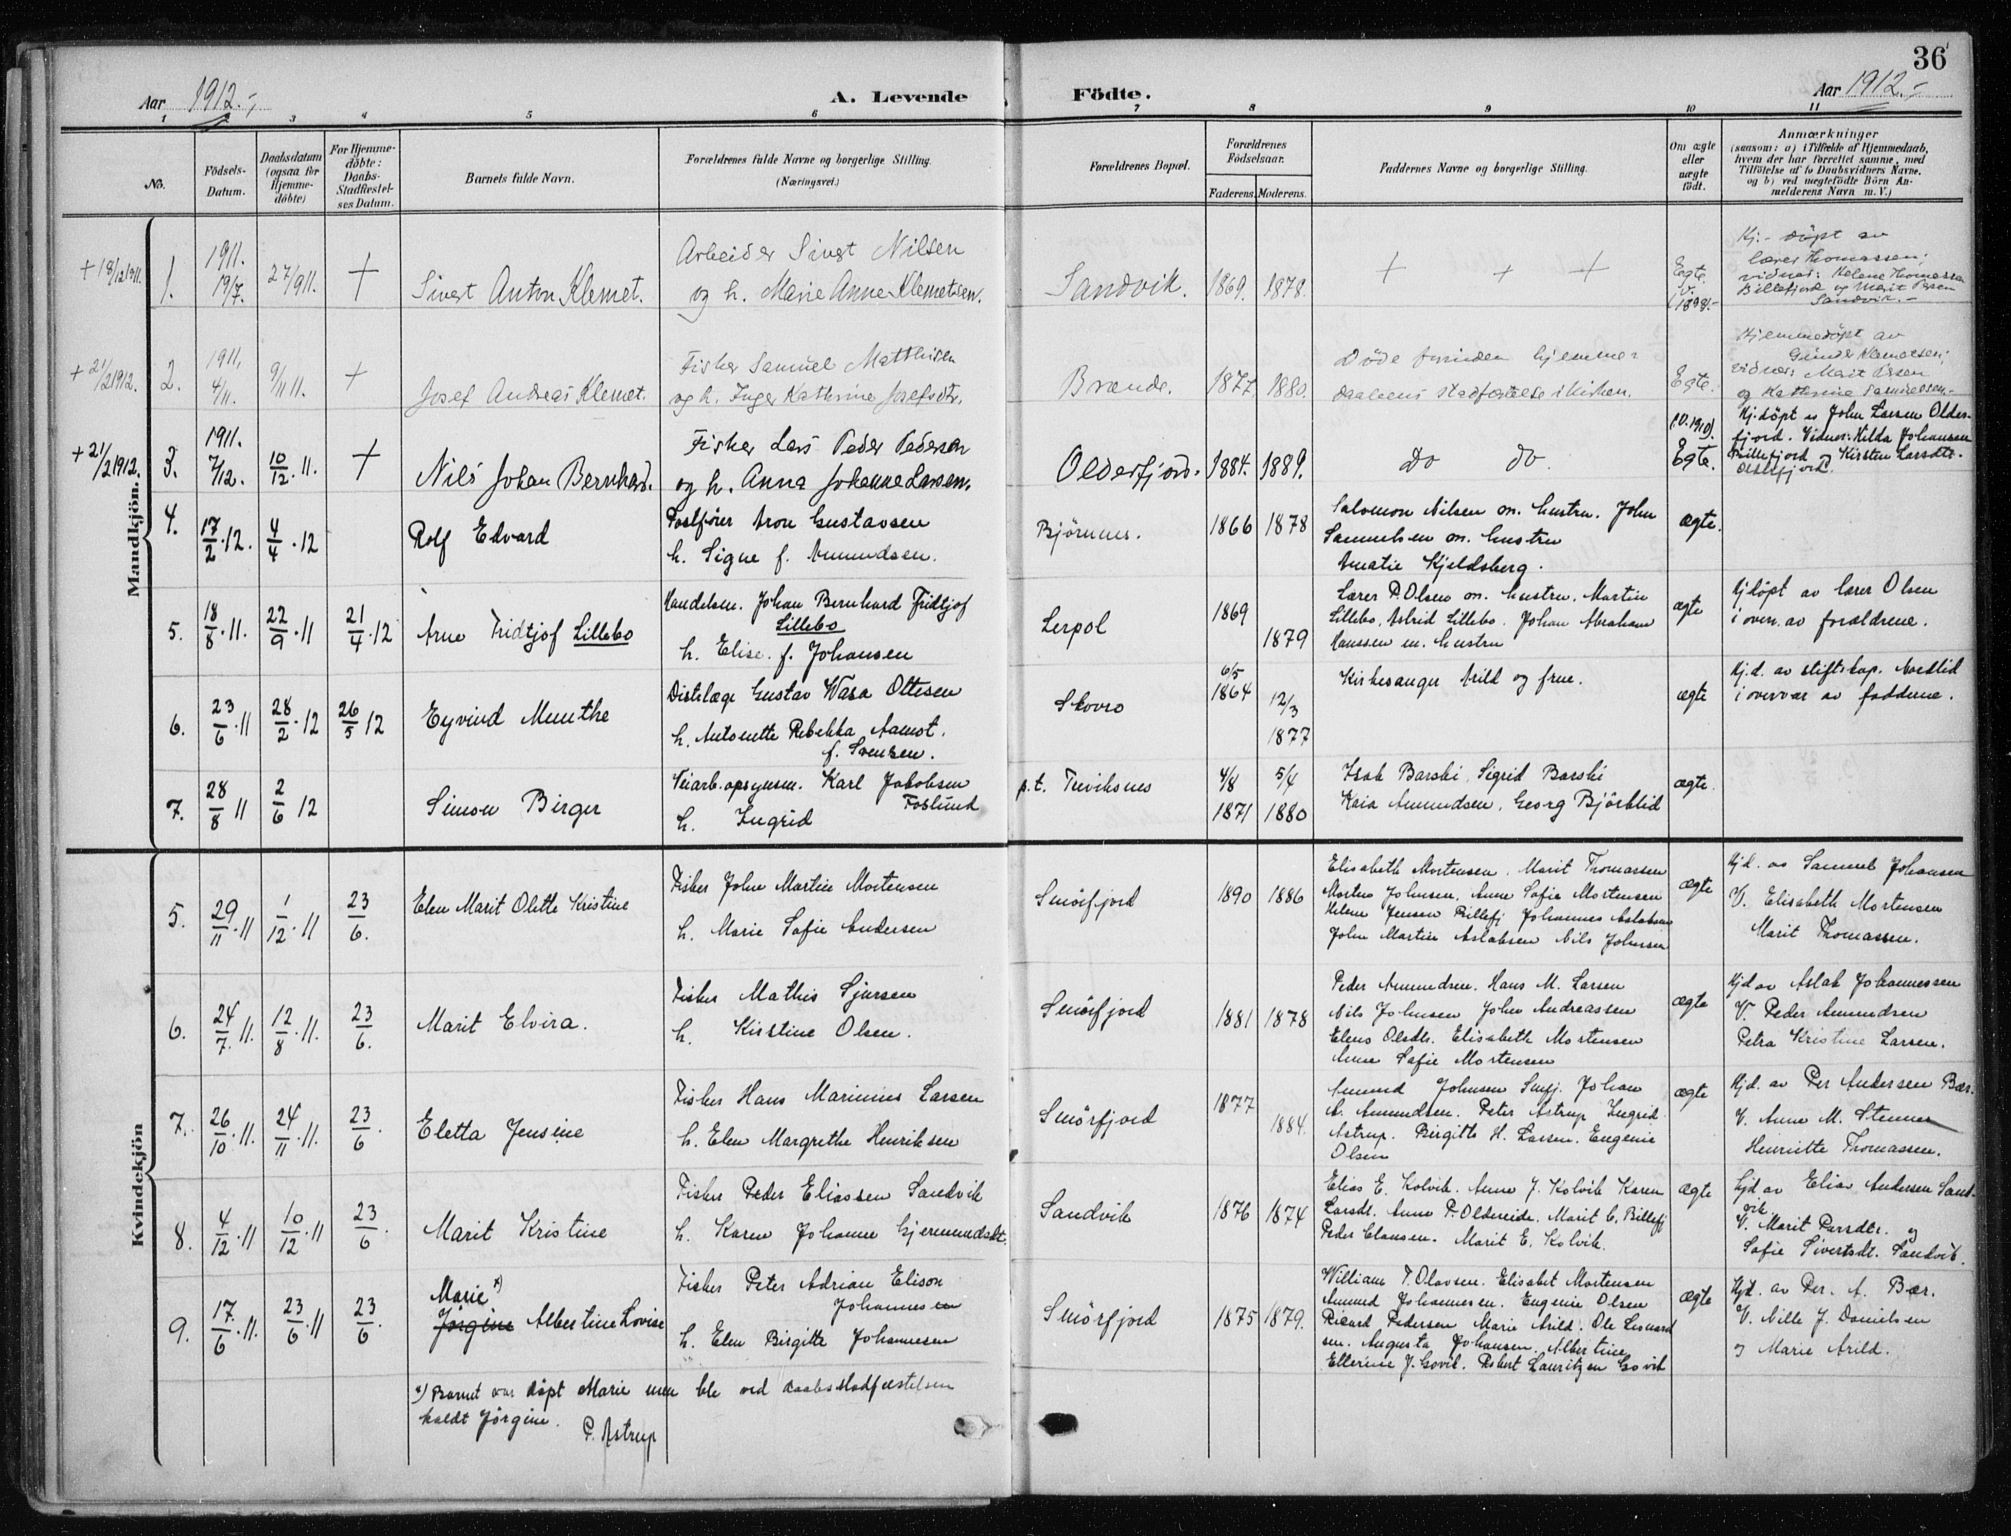 36
Aar 1912.-,
A. Levende Födte.
Aar 1912.-,
1 3 4 5 6 7 8 9 10 11
No.
Födsels-Datum.
Daabsdatum (ogsaa for Hjemmedöbte)
For Hjemmedöbte: Daabs-Stadfæstelses Datum.
Barnets fulde Navn.
Forældrenes fulde Navne og borgerlige Stilling.
(Næringsvei.)
Forældrenes Bopæl.
Forældrenes Födselsaar.
Faderens. Moderens.
Faddernes Navne og borgerlige Stilling.
Om ægte eller uægte födt.
Anmærkninger
(saasom: a) i Tilfælde af Hjemmedaab,
hvem der har forrettet samme, med
Tilföielse af to Daabsvidners Navne,
og b) ved uægtefödte Börn Anmelderens Navn m. V.)
Mandkjön.
1. 1911. 19/7. 27/9 11. +
Sivert Anton Klemet.
Arbeider Sivert Nilsen
og h. Marie Anne Klemetsen.
Sandvik. 1869. 1878.
+ + +
Egte.
Kj.- døpt av
lærer Thomassen;
vidner: Helene Thomassen
Billefjord og Marit Persen
Sandvik.-
+ 21/2 1912. 2. 1911. 4/11. 9/11 11. +
Josef Andreas Klemet.
Fisker Samuel Matthisen
og h. Inger Kathrine Josefsdtr.
Brænde. 1877. 1880.
Døde forinden hjemme-
daabens stadfæstelse i kirken.
Egte.
Hjemmedöpt av
vidner: Marit Persen
+ 21/2 1912. 3. 1911. 7/12. 10/12. 11. +
Nils Johan Bernhard.
Fisker Lars Peder Pedersen
og h. Anna Johanne Larsen.
Olderfjord. 1884. 1889.
do do.
Egte.
Kj.döpt av John Larsen Older-
fjord. Vidner: Hilda Johansen
Billefjord og Kirsten Larsdtr.
Olderfjord.
4. 17/2.12. 4/4.12
Rolf Edvard
Postfører Aron Gustavsen
h. Signe f. Amundsen.
Björnnes. 1866 1878
Salomon Nilsen m. hustru. John
Samuelsen m. hustru
Amalie Kjeldsberg.
ægte.
5. 18/8.11. 22/9.11 21/4.12
Arne Fridtjof Lillebo
Handelsm. Johan Bernhard Fridtjof
Lillebo
h. Elise. f. Johansen
Lerpol 1869 1879
Lærer P. Olsen m. hustru. Martin
Lillebo, Astrid Lillebo. Johan Abraham
Hanssen m. hustru
ægte
Hj.döpt av lærer Olsen
i overv. av forældrene.
6. 23/6.11 28/2.12 26/5 12
Eyvind Munthe
Distslæge Gustav Wasa Ottesen
h. Antonette Rebekka Aamot.
f. Svensen.
Skovro 6/5 1864 12/3 1877
Kirkesanger Arild og frue.
ægte
Hj.d. av stiftskap. Nordlid
i overvær av fadderne.
7. 28/8 11 2/6 12
Simon Birger
Veiarb.opsynsm. Karl Jakobsen
Foslund
h. Ingrid
p.t. 4/8 1871 5/4 1880
Isak Barski, Sigrid Barski
Kaia Amundsen, Georg Bjørklid
ægte.
Kvindekjön
5. 29/11.11 1/12.11 23/6.
Elen Marit Olette Kristine
Fisker John Martin Mortensen
h. Marie Sofie Andersen
Smörfjord 1890 1886
Elisabeth Mortensen. Marit Thomassen
Morten Johnsen. Anne Sofie Mortensen
Helene Jensen Billefj. Johannes Aslaksen
John Martin Aslaksen Nils Johnsen
ægte
Hj.d. av Samuel Johansen
V. Elisabeth Mortensen
Marit Thomassen.
6. 24/7.11. 12/8.11. 23/6.
Marit Elvira.
Fisker Mathis Sjursen
h. Kirstine Olsen.
Smörfjord 1881 1878
Peder Amundsen. Hans M. Larsen
Nils Johnsen John Andreassen
Elens Olsdtr. Elisabeth Mortensen
Anne Sofie Mortensen
ægte
Hjd av Aslak Johannessen
V. Peder Amundsen
Petra Kristine Larsen.
7. 26/10.11. 24/11.11. 23/6.
Eletta Jensine
Fisker Hans Marinius Larsen
h. Elen Margrethe Henriksen
Smörfjord 1877 1884.
Amund Johnsen Smfj. Johan
A. Amundsen. Peter Astrup. Ingrid
Astrup. Birgitte H. Larsen. Eugenie
Olsen
ægte
Hjd. av Per Andersen Bær.
V. Anne M. Stenner
Henriette Thomassen.
8. 4/12.11 10/12.11 23/6.
Marit Kristine
Fisker Peder Eliassen Sandvik
h. Karen Johanne Gjermundsdt.
Sandvik 1876 1874
Elias E. Kolvik. Anne J. Kolvik Karen
Larsdt. Anne P. Oldereide. Marit C. Billefj
Peder Clausen. Marit E. Kolvik.
ægte
Hjd av Elias Andersen Sand-
vik.
V. Marit Persdtr. og
Sofie Sivertsdt. Sandvik.
9. 17/6.11. 23/6.11 23/6.
Marie x)
Jörgine Albertine Lovise
Fisker Peter Adrian Elison
Johannesen
h. Elen Birgitte Johannesen
Smörfjord 1875 1879.
William T. Olavsen. Elisabet Mortensen
Amund Johannesen. Eugenie Olsen
Rikard Pedersen Marie Arild. Ole Leonard
sen. Augusta Johansen. Albertine
Ellerine J. Govik. Robert Lauritzen Govik
ægte
Hjd. av Per. A. Bær.
V. Nille J. Danielsen
og Marie Arild.
x) Barnet var döpt Marie men ble ved daabsstadfæstelsen
kaldt Jörgine.
P. Astrup